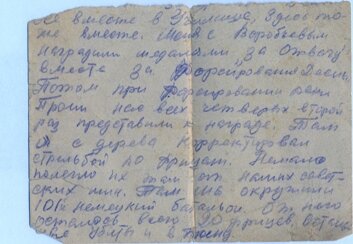 е вместе в Училище, Здесь то-
же вместе. Меня с Воробьевым
наградили медалями „За Отвагу“
вместа За Форсирования Десны.
Потом при форсировании реки
Прони нас всех четверых второй
раз представили к награде. Там
я с дерева корректировал
стрельбой по Фрицам. Немало
полегло их там от наших совет-
ских мин. Там мы окружили
101й немецкий батальон. От него
осталось всего 20 фрицев,
убиты и в плену.